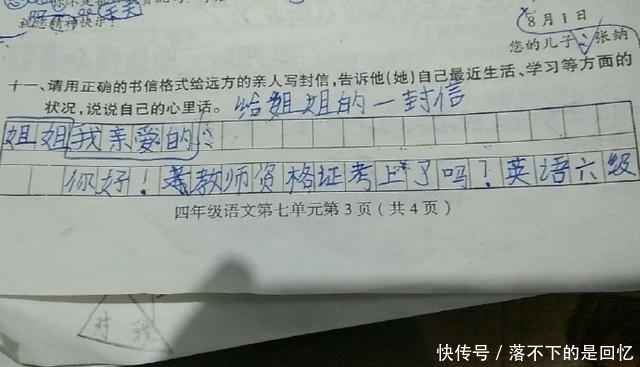 祝您精神快乐！
8月1日
您的儿子：张纳
十一、请用正确的书信格式给远方的亲人写封信，告诉他（她）自己最近生活、学习等方面的
状况，说说自己的心里话。给姐姐的一封信
姐姐我亲爱的：
你好！教师资格证考上了吗？英语六级
四年级语文第七单元第3页（共4页）
快传号/落不下的是回忆